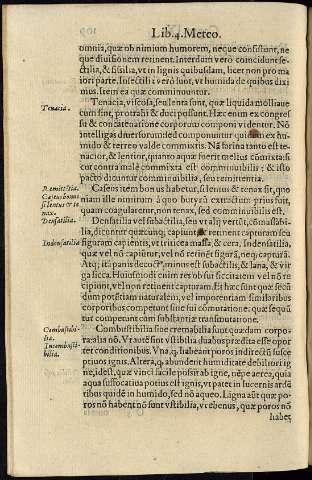 Lib.4. Meteo.
omnia, quæ ob nimium humorem, neque consistunt, ne
que diuisionem retinent. Interdum verò coincidunt se-
ctilia, & fissilia, vt in lignis quibusdam, licet non pro ma
iori parte. Insectili verò sunt, vt humida de quibus dixi
mus. Item ea quæ comminuuntur.
Tenacia.
Tenacia, viscosa, seu lenta sunt, quæ liquida molliaue
cum sint, protrahi & duci possunt. Hæc enim ex congres
su & concatenatione corporum componi videntur. Nō
intelligas diuersorum: sed componuntur quidem ex hu
mido & terreo valde commixtis. Nā farina tanto est te-
nacior, & lentior, quanto aquæ fuerit melius cōmixta: si-
cor contra malè commixta est comminuibilis : & isto
pacto dicuntur comminuibilia, seu remittentia.
Remittētia.
Caseus bonus
si lentus & te
nax.
Densatilia.
Caseus item bonus habetur, si lentus & tenax sit, quo
niam iste nimirum à quo butyrū extractum prius fuit,
quam coagularetur, non tenax, sed comminuibilis est.
Densatilia vel subactilia, seu vt alij vertūt, cōmassabi-
lia, dicuntur quæcunq; capiunt & retinent capturam seu
Indensatilia
figuram capientis, vt triticea massa, & cera. Indensatilia,
quæ vel nō capiunt, vel nō retinēt figurā, neq; capturā.
Atq; ità panis decoct⁹, minus est subactilis, & lana, & vir
ga sicca. Huiusmodi enim res ob sui siccitatem vel nō re
cipiunt, vel non retinent capturam. Et hæc sunt quæ secū
dum potestiam naturalem, vel impotentiam similaribus
corporibus competunt sine sui cōmutatione: quæ sequū
tur competunt cum substantiæ transmutatione.
Combustibi-
lia.
Incombusti-
bilia.
Combustibilia siue cremabilia sunt quædam corpo-
ra: alia nō. Vt autē sint vstibilia duabus præedita esse opor
ter conditionibus. Vna, q. habeant poros indirectū susce
ptiuos ignis. Altera, q. abundent humiditate debiliori ig
ne, idest, quæ vinci facile possit ab igne, népe aerea, quia
aqua suffocatiua potius est ignis, vt patet in lucernis ardē
tibus quidē in humido, sed nō aqueo. Ligna aūt quæ po-
ros nō habent nō sunt vstibilia, vt ebenus, quæ poros nō
habet